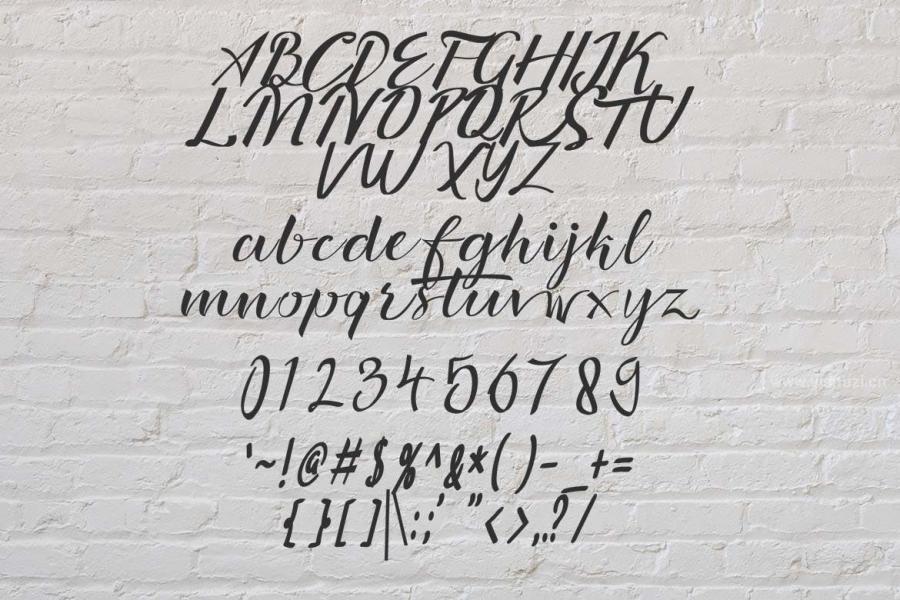 ABCDEFGHIJK
LMNOPQRSTU
VWXYZ
abcdefghijkl
mnopqrstuvwxyz
0123456789
'~!@#$%^&*()-_+=
{}[]|\:;'"<>,.?/